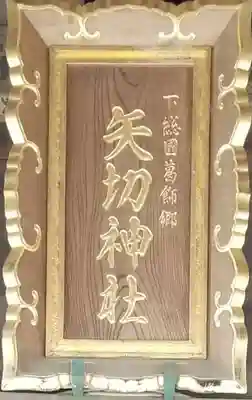 下総国葛飾郷
矢切神社